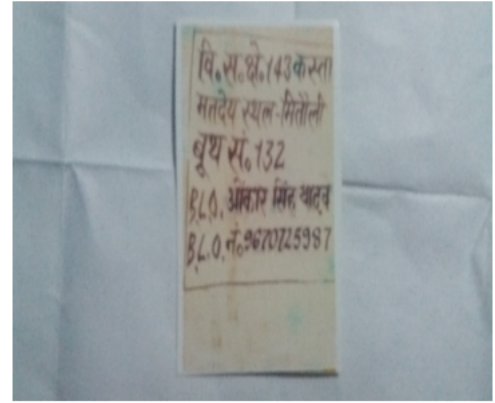 वि.स.क्षे.143 कस्ता
मतदेय स्थल-मितौली
बूथ सं.132
B.L.O. ओंकार सिंह यादव
B.L.O. नं.9670725987